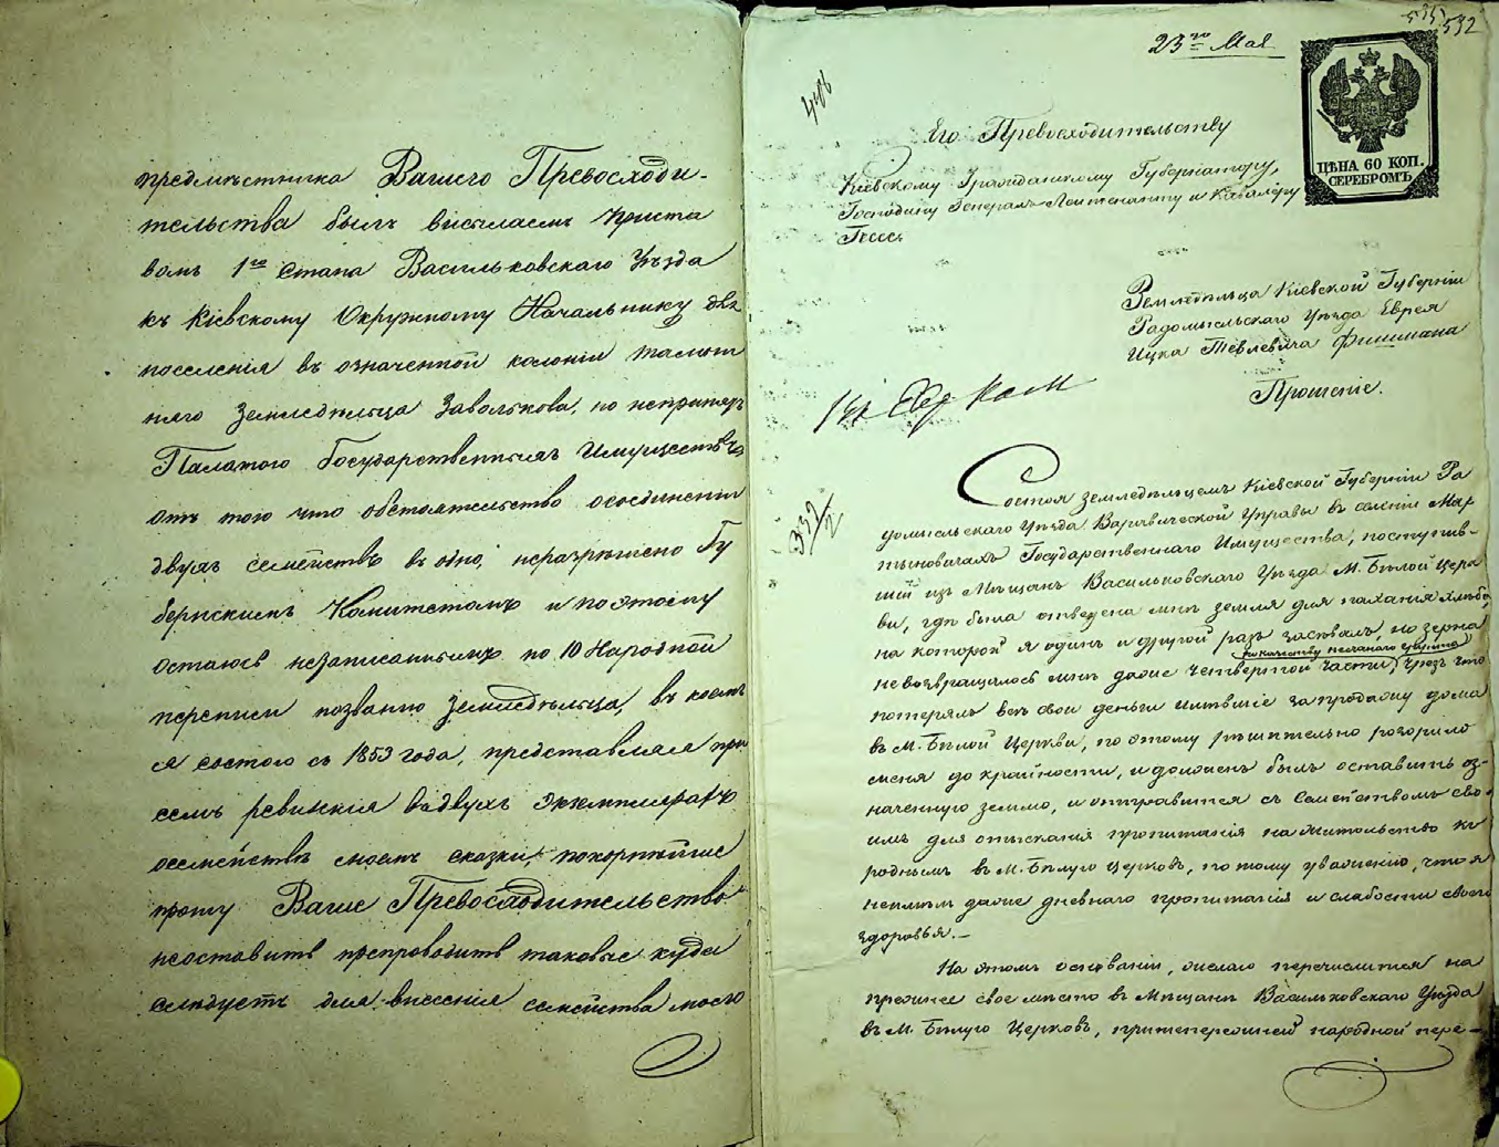 предмѣстника Вашего Превосходи-
тельства былъ высылаемъ Приста
вомъ 1го Стана Васильковскаго Уѣзда
къ Кіевскому Окружному Начальнику для
поселенія въ означенной колоніи тамъ
няго земледѣльца Завалькова, но непринятъ
Палатою Государственныхъ Имуществъ
отъ того что обстоятельство осоединеніи
двухъ семействъ въ одно, неразрѣшено Гу
бернскимъ Комитетомъ и поэтому
остаюсь незаписаннымъ по 10 Народной
переписи позванію земледѣльца, въ коемъ
я состою съ 1853 года, представляя при
семъ ревизкія въдвухъ экземплярахъ
осемействѣ моемъ сказки, покорнѣйше
прошу Ваше Превосходительство
неоставить препроводить таковые куда
слѣдуетъ для внесенія семейства моего
535 532
23го Мая
ЦѢНА 60 КОП.
СЕРЕБРОМЪ.
448
Его Превосходительству
Кіевскому Гражданскому Губернатору,
Господину Генералъ-Лейтенанту и Кавалеру
Гессе.
Земледѣльца Кіевской Губерніи
Радомысльскаго Уѣзда Еврея
Ицка Тевлевича Фишмана
Прошеніе.
332/2
Состоя земледѣльцемъ Кіевской Губерніи Ра
домысльскаго Уѣзда Управы въ селеніи Мар
тыновичахъ Государственнаго Имущества, поступив-
шій изъ Мѣщанъ Васильковскаго Уѣзда М. Бѣлой Церк
ви, гдѣ была отведена мнѣ земля для паханія хлѣба,
на которой я одинъ и другой разъ засѣвалъ, но зерна
по качеству песчаного грунта
невозвращалось мнѣ даже четвертой части, чрезъ что
потерялъ всѣ свои деньги имѣвшіе запродажу дома
въ М. Бѣлой Церкви, поэтому рѣшительно розорило
меня до крайности, и долженъ былъ оставить оз-
наченную землю, и отправится съ Семействомъ сво-
имъ для отысканія пропитанія на жительство къ
роднымъ въ М. Бѣлую Церковь, потому уваженію, что я
неимѣлъ даже дневнаго пропитанія и слабости своего
здоровья.-
На этомъ основаніи, желаю перечислится на
прежнее свое мѣсто въ Мѣщане Васильковскаго Уѣзда
въ М. Бѣлую Церковь, притеперешней народной пере-